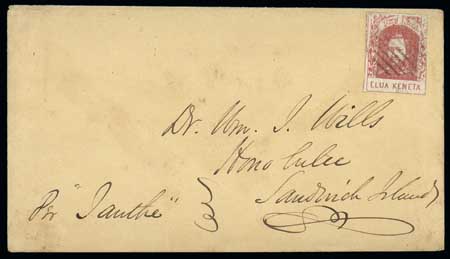 ELUA KENETA
Dr. Wm. J. Wills
Honolulu
Sandwich Islands
Per "Ianthe"